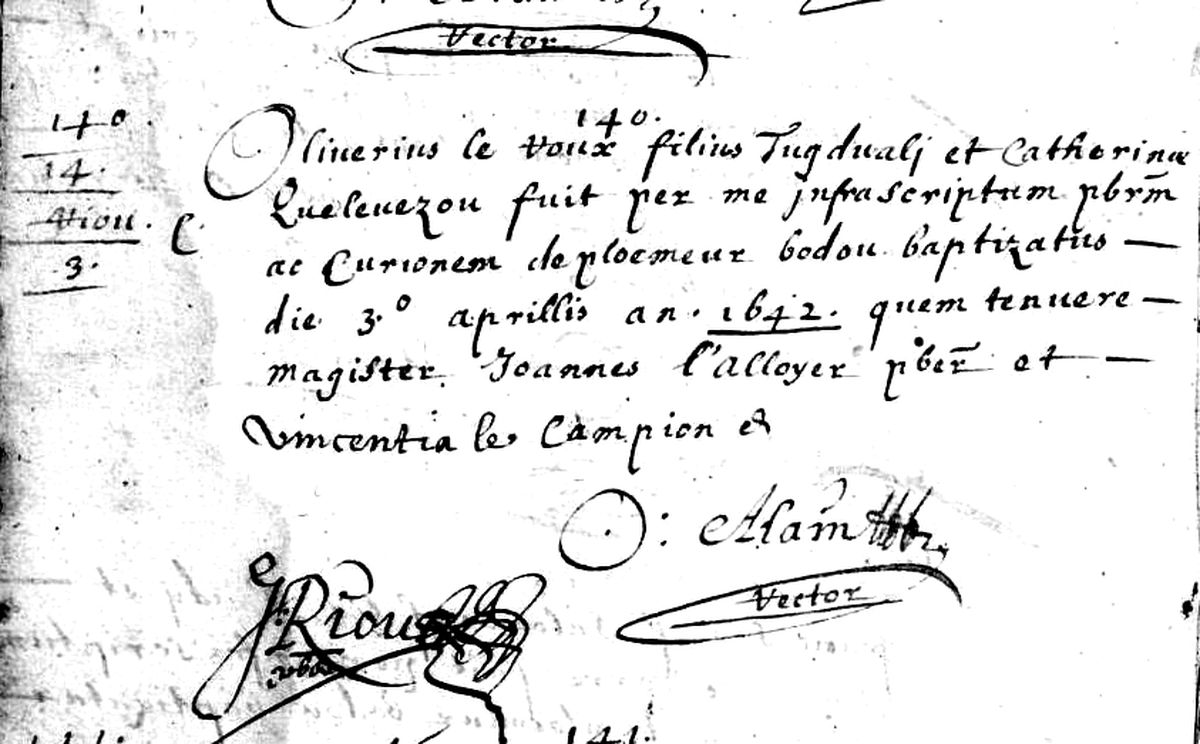 Vector
140.
14.
Riou.
3.
140.
Oliuerius le voux filius Tugduali et Catherinæ
Queleuezou fuit per me infrascriptum pbrm̄
ac Curionem de ploemeur bodou baptizatus —
die 3.º aprillis an. 1642. quem tenuere —
magister Joannes l'Alloyer p̄ber et —
Vincentia le Campion &
O: Alam̄
Vector
Riou
141.